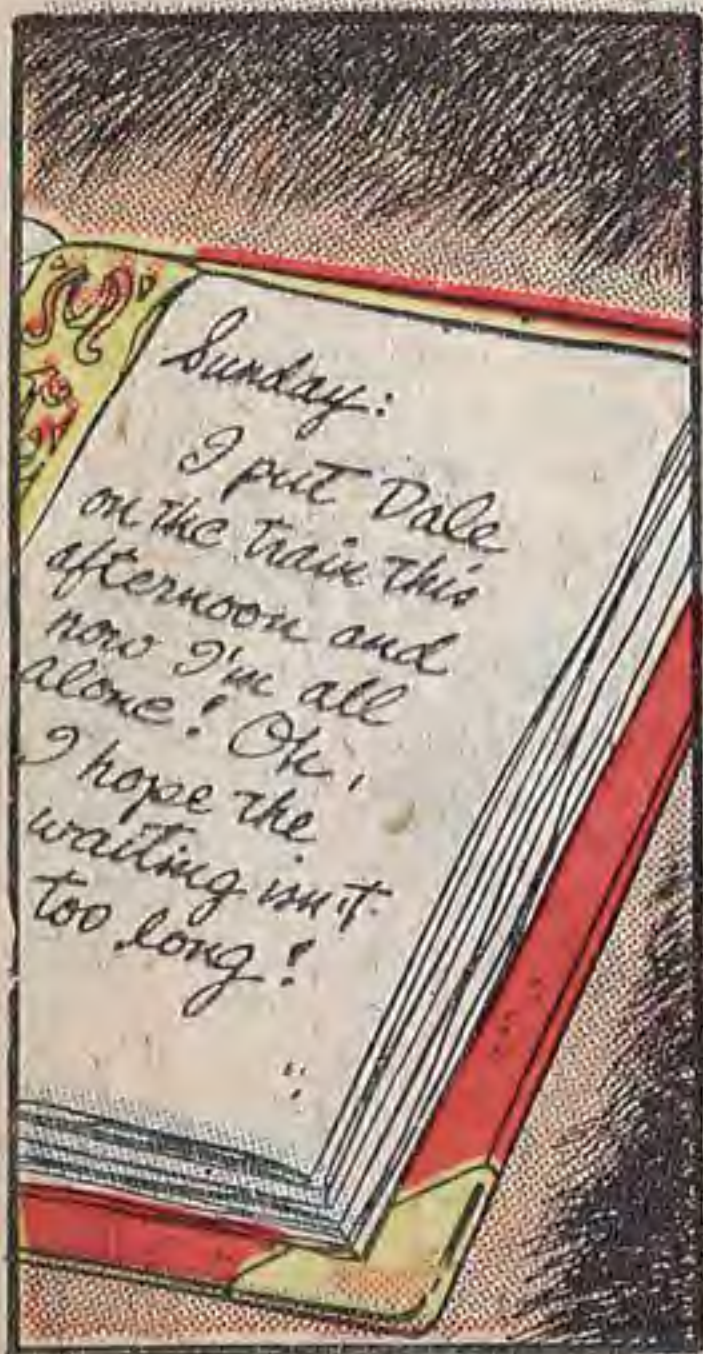 Sunday:
I put Dale
on the train this
afternoon and
now I'm all
alone! Oh,
I hope the
waiting isn't
too long!